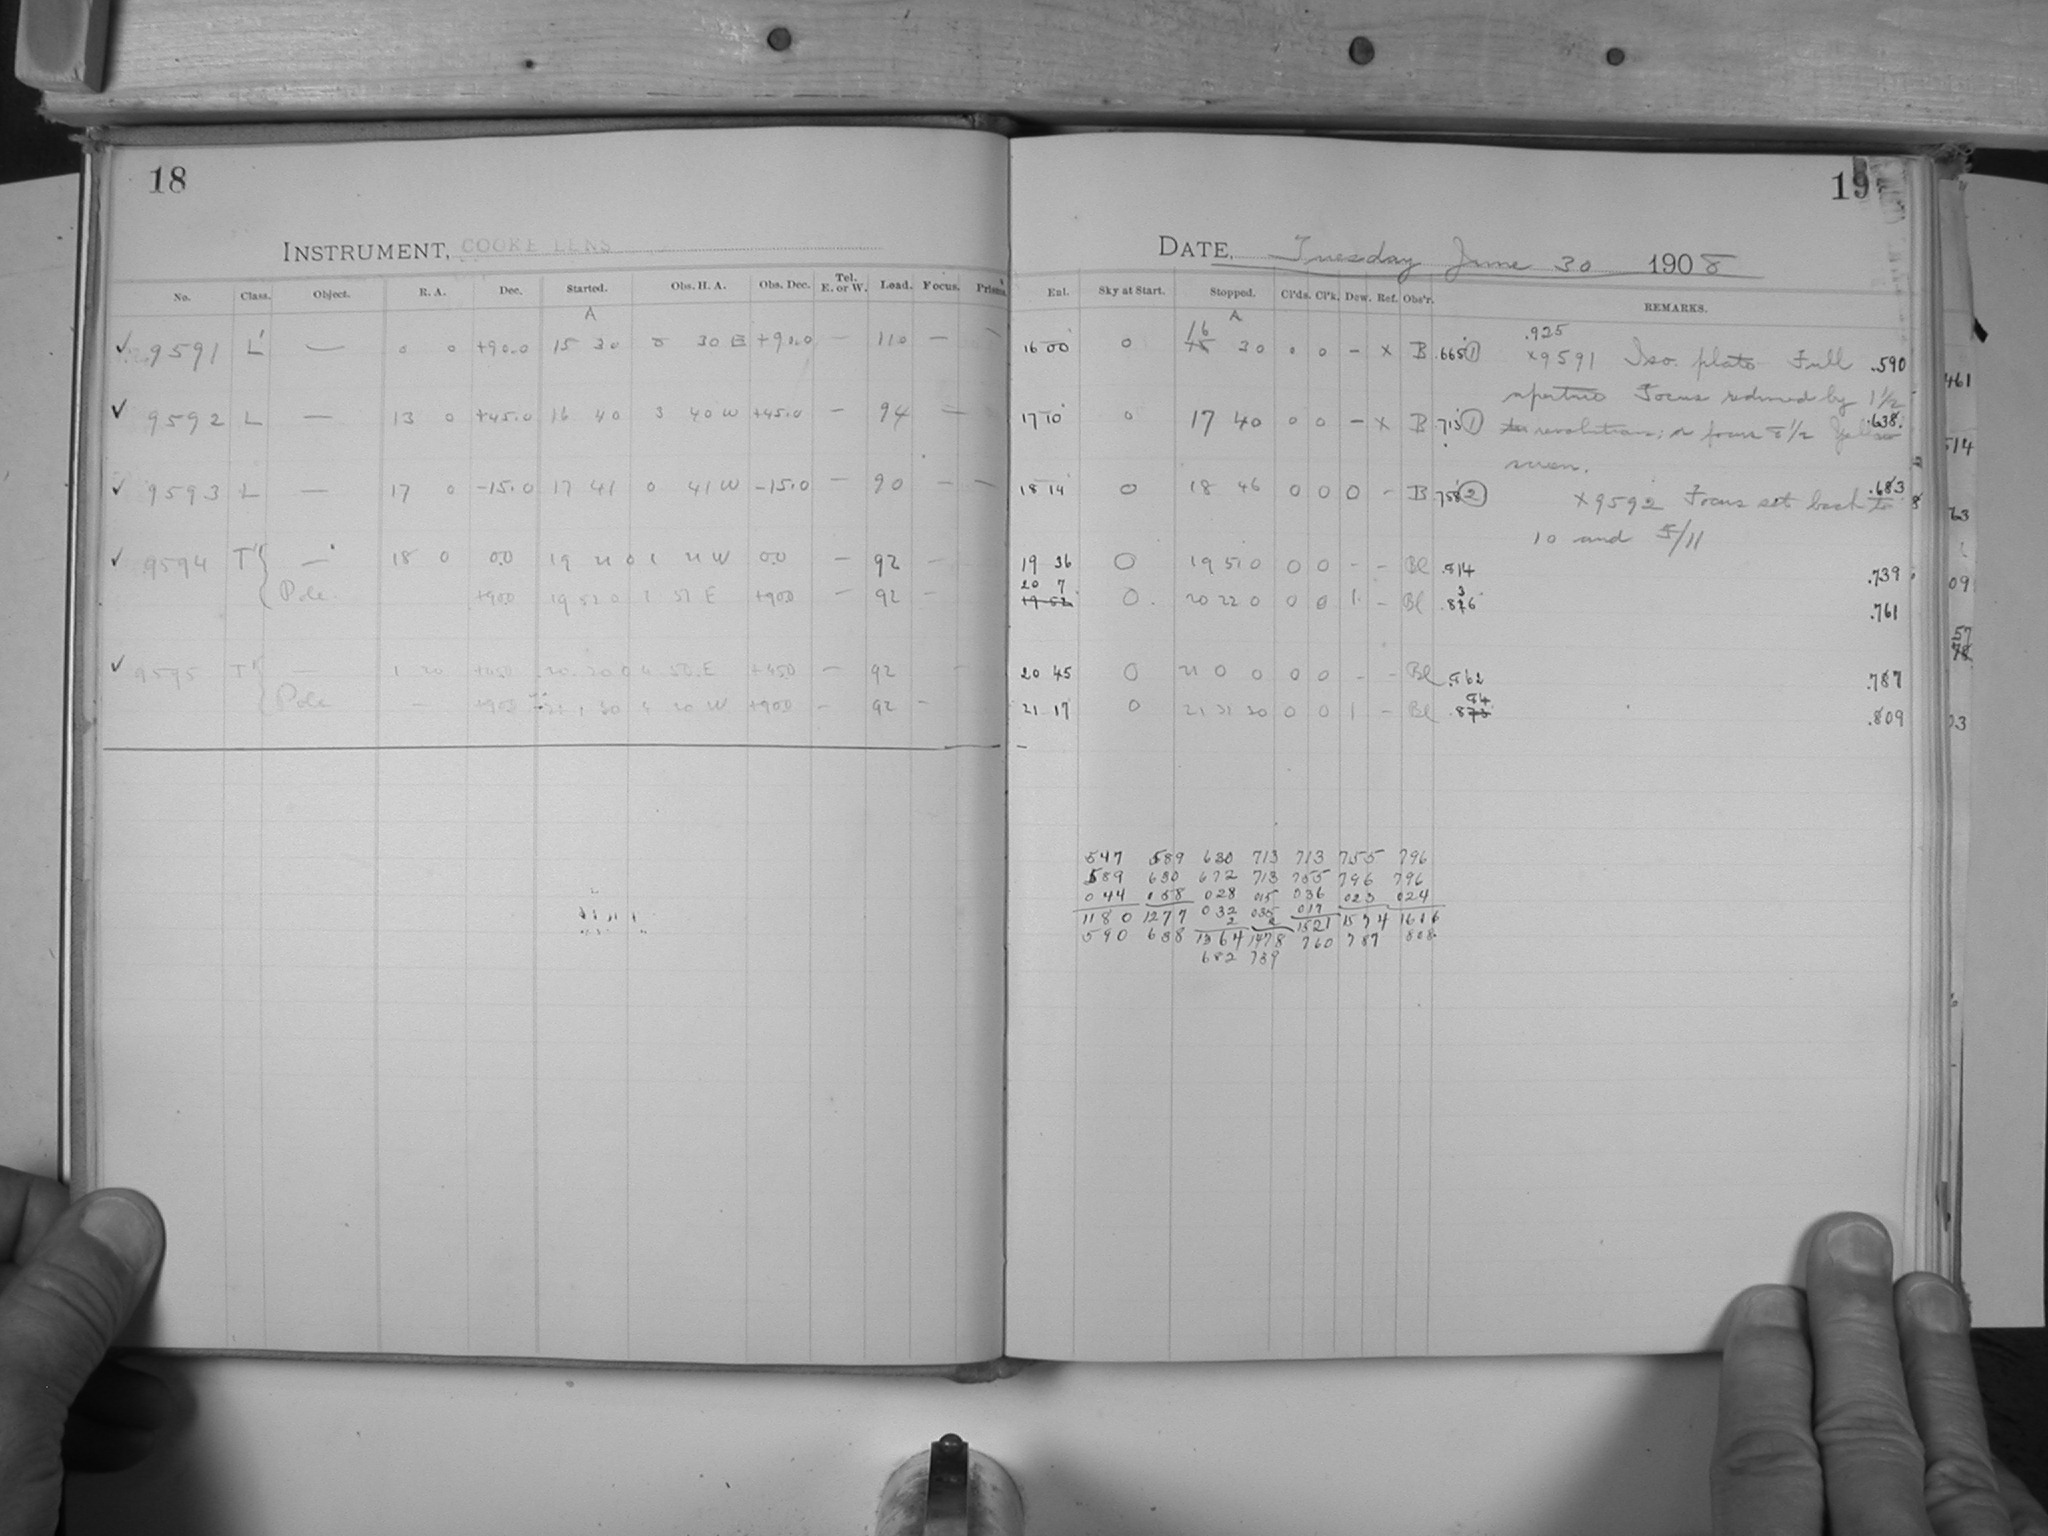 18
INSTRUMENT, COOKE LENS
No. Class. Object. R. A. Dec. Started. Obs. H. A. Obs. Dec. Tel. E. or W. Lead. Focus. Prisms.
A
✓ 9591 L' — 0 0 +90.0 15 30 8 30 E +90.0 — 110 — —
✓ 9592 L — 13 0 +45.0 16 40 3 40 W +45.0 — 94 —
✓ 9593 L — 17 0 -15.0 17 41 0 41 W -15.0 — 90 — —
✓ 9594 T' { — 18 0 0.0 19 21 0 1 21 W 0.0 — 92 —
Pole +90.0 19 52 0 1 52 E +90.0 — 92 —
✓ 9595 T' { — 1 20 +45.0 20 30 0 4 50 E +45.0 — 92 —
Pole — +90.0 21 1 30 4 20 W +90.0 — 92 —
19
DATE, Tuesday June 30 1908
Ext. Sky at Start. Stopped. Cl'ds. Cl'k. Dew. Ref. Obs'r. REMARKS.
A
16 00 0 16 30 0 0 — x B .665 (1)
17 10 0 17 40 0 0 — x B .713 (1)
18 14 0 18 46 0 0 0 - B .758 (2)
19 36 0 19 51 0 0 0 - - Bl .814
20 7 0 20 22 0 0 0 1 - Bl
20 45 0 21 0 0 0 0 - - Bl .862
21 17 0 21 32 30 0 0 1 - Bl
.925
x9591 Iso. plate Full .590
aperture Focus reduced by 1½
revolutions; focus 8½ Yellow .638
screen.
x9592 Focus set back to .683
10 and 5/11
.739
.761
.787
.809
547 589 630 713 713 755 796
589 630 672 713 755 796 796
044 058 028 015 036 023 024
1180 1277 032 035 017 1574 1616
590 638 1364 1478 1521 787 808
682 739 760
461
514
63
09
57
03